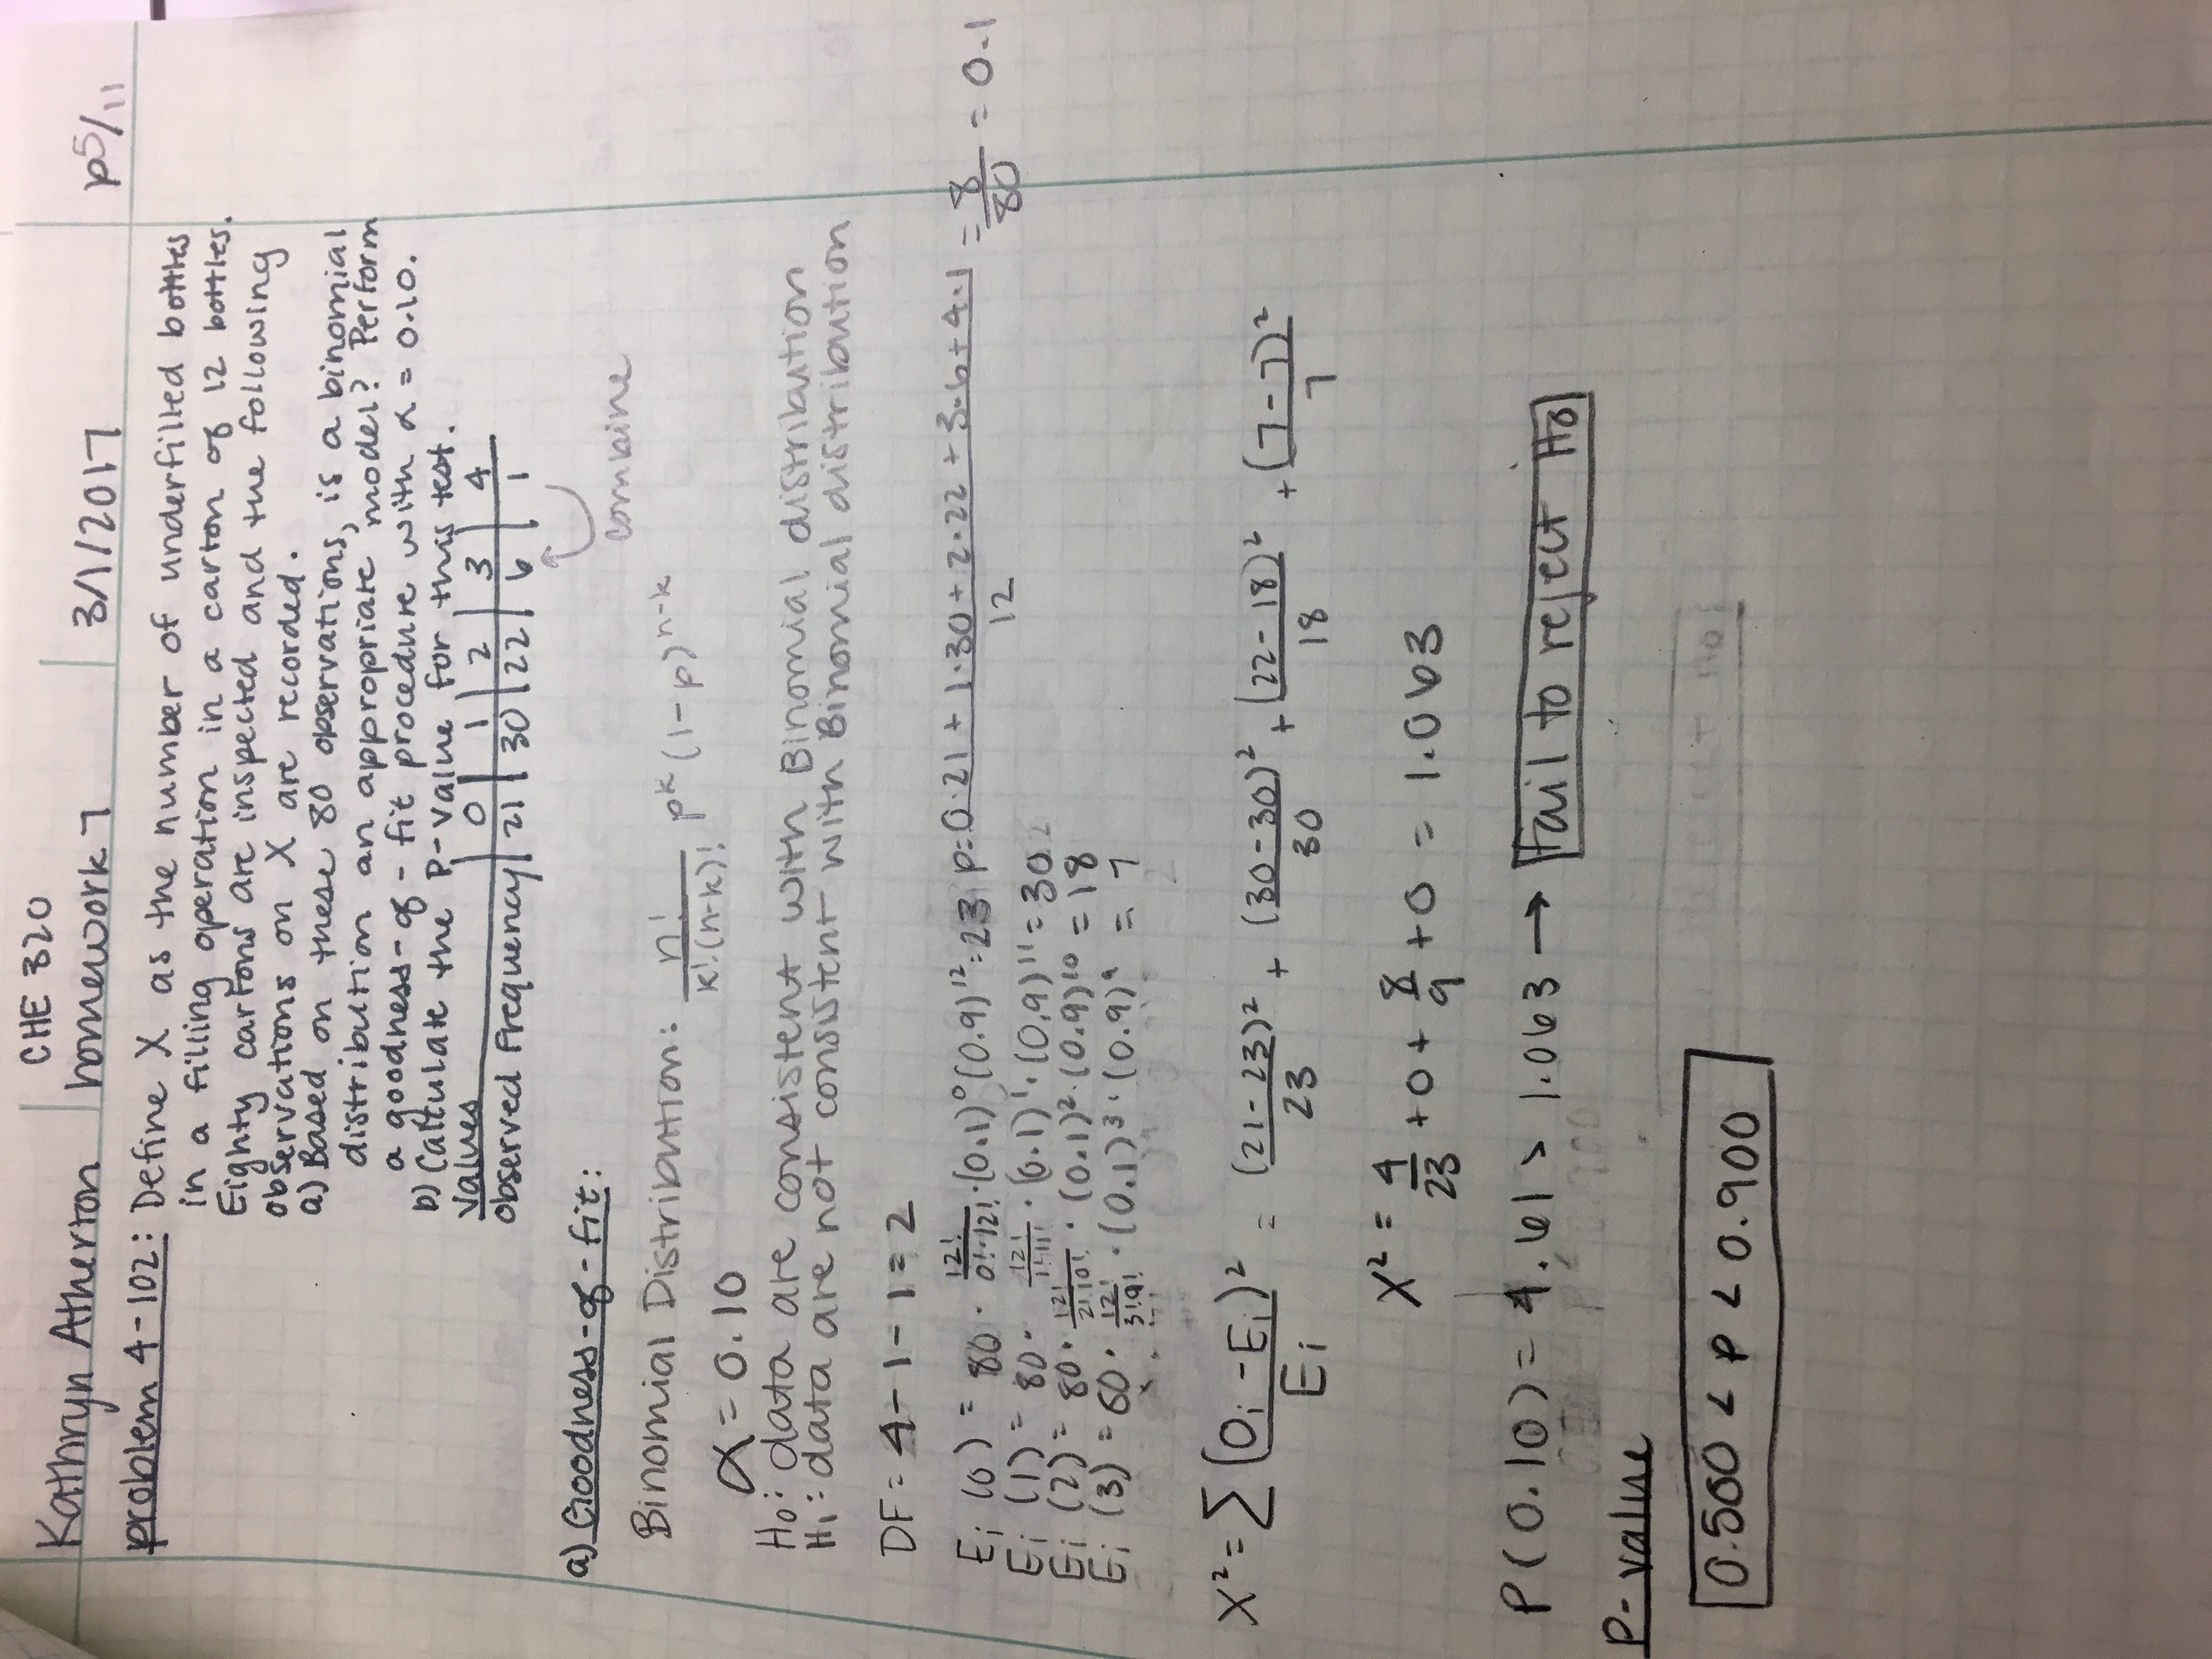 CHE 320
Kathryn Atherton homework 7 3/1/2017 p5/11
problem 4-102: Define X as the number of underfilled bottles
in a filling operation in a carton of 12 bottles.
Eighty cartons are inspected and the following
observations on X are recorded.
a) Based on these 80 observations, is a binomial
distribution an appropriate model? Perform
a goodness-of-fit procedure with α = 0.10.
b) Calculate the P-value for this test.
values | 0 | 1 | 2 | 3 | 4
Observed Frequency | 21 | 30 | 22 | 6 | 1
combine
a) Goodness-of-fit:
Binomial Distribution: n!/(k!(n-k)!) p^k (1-p)^(n-k)
α = 0.10
H₀: data are consistent with Binomial distribution
H₁: data are not consistent with Binomial distribution
DF = 4-1-1 = 2
Ei (0) = 80 · 12!/(0!·12!) · (0.1)^0 (0.9)^12 = 23 p = (0·21 + 1·30 + 2·22 + 3·6 + 4·1)/12 = 8/80 = 0.1
Ei (1) = 80 · 12!/(1!11!) · (0.1)^1 · (0.9)^11 = 30
Ei (2) = 80 · 12!/(2!10!) · (0.1)^2 · (0.9)^10 = 18
Ei (3) = 60 · 12!/(3!9!) · (0.1)^3 · (0.9)^9 = 7
X² = Σ (Oi - Ei)²/Ei = (21-23)²/23 + (30-30)²/30 + (22-18)²/18 + (7-7)²/7
X² = 4/23 + 0 + 8/9 + 0 = 1.063
P(0.10) = 4.61 > 1.063 → Fail to reject H₀
P-value
0.500 < p < 0.900